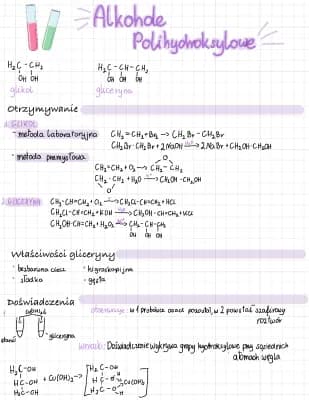 Alkohole
Polihydroksylowe
H₂C - CH₂
OH OH
glikol
H₂C - CH - CH₂
OH OH OH
gliceryna
Otrzymywanie
1. GLIKOL
· metoda laboratoryjna
CH₂=CH₂+Br₂ → CH₂Br-CH₂Br
CH₂Br-CH₂Br + 2NaOH → 2NaBr + CH₂OH-CH₂OH
· metoda przemysłowa
CH₂=CH₂+O₂ → CH₂-CH₂
O
CH₂-CH₂ + H₂O → CH₂OH-CH₂OH
O
2. GLICERYNA
CH₃-CH=CH₂+Cl₂ → CH₂Cl-CH=CH₂+HCl
CH₂Cl-CH=CH₂+KOH → CH₂OH-CH=CH₂+KCl
CH₂OH-CH=CH₂+H₂O₂ → CH₂-CH-CH₂
OH OH OH
Właściwości gliceryny
· bezbarwna ciecz
· higroskopijna
· słodka
· gęsta
Doświadczenia
1.
Cu(OH)₂↓
gliceryna
obserwacje: w 1 probówce osad pozostał, w 2 powstał szafirowy
roztwór
wnioski: Doświadczenie wykrywa grupy hydroksylowe przy sąsiednich
atomach węgla
H₂C-OH
HC-OH
H₂C-OH
+ Cu(OH)₂ →
H₂C-OH
H
HC-O
Cu(OH)₂
H₂C-O
H